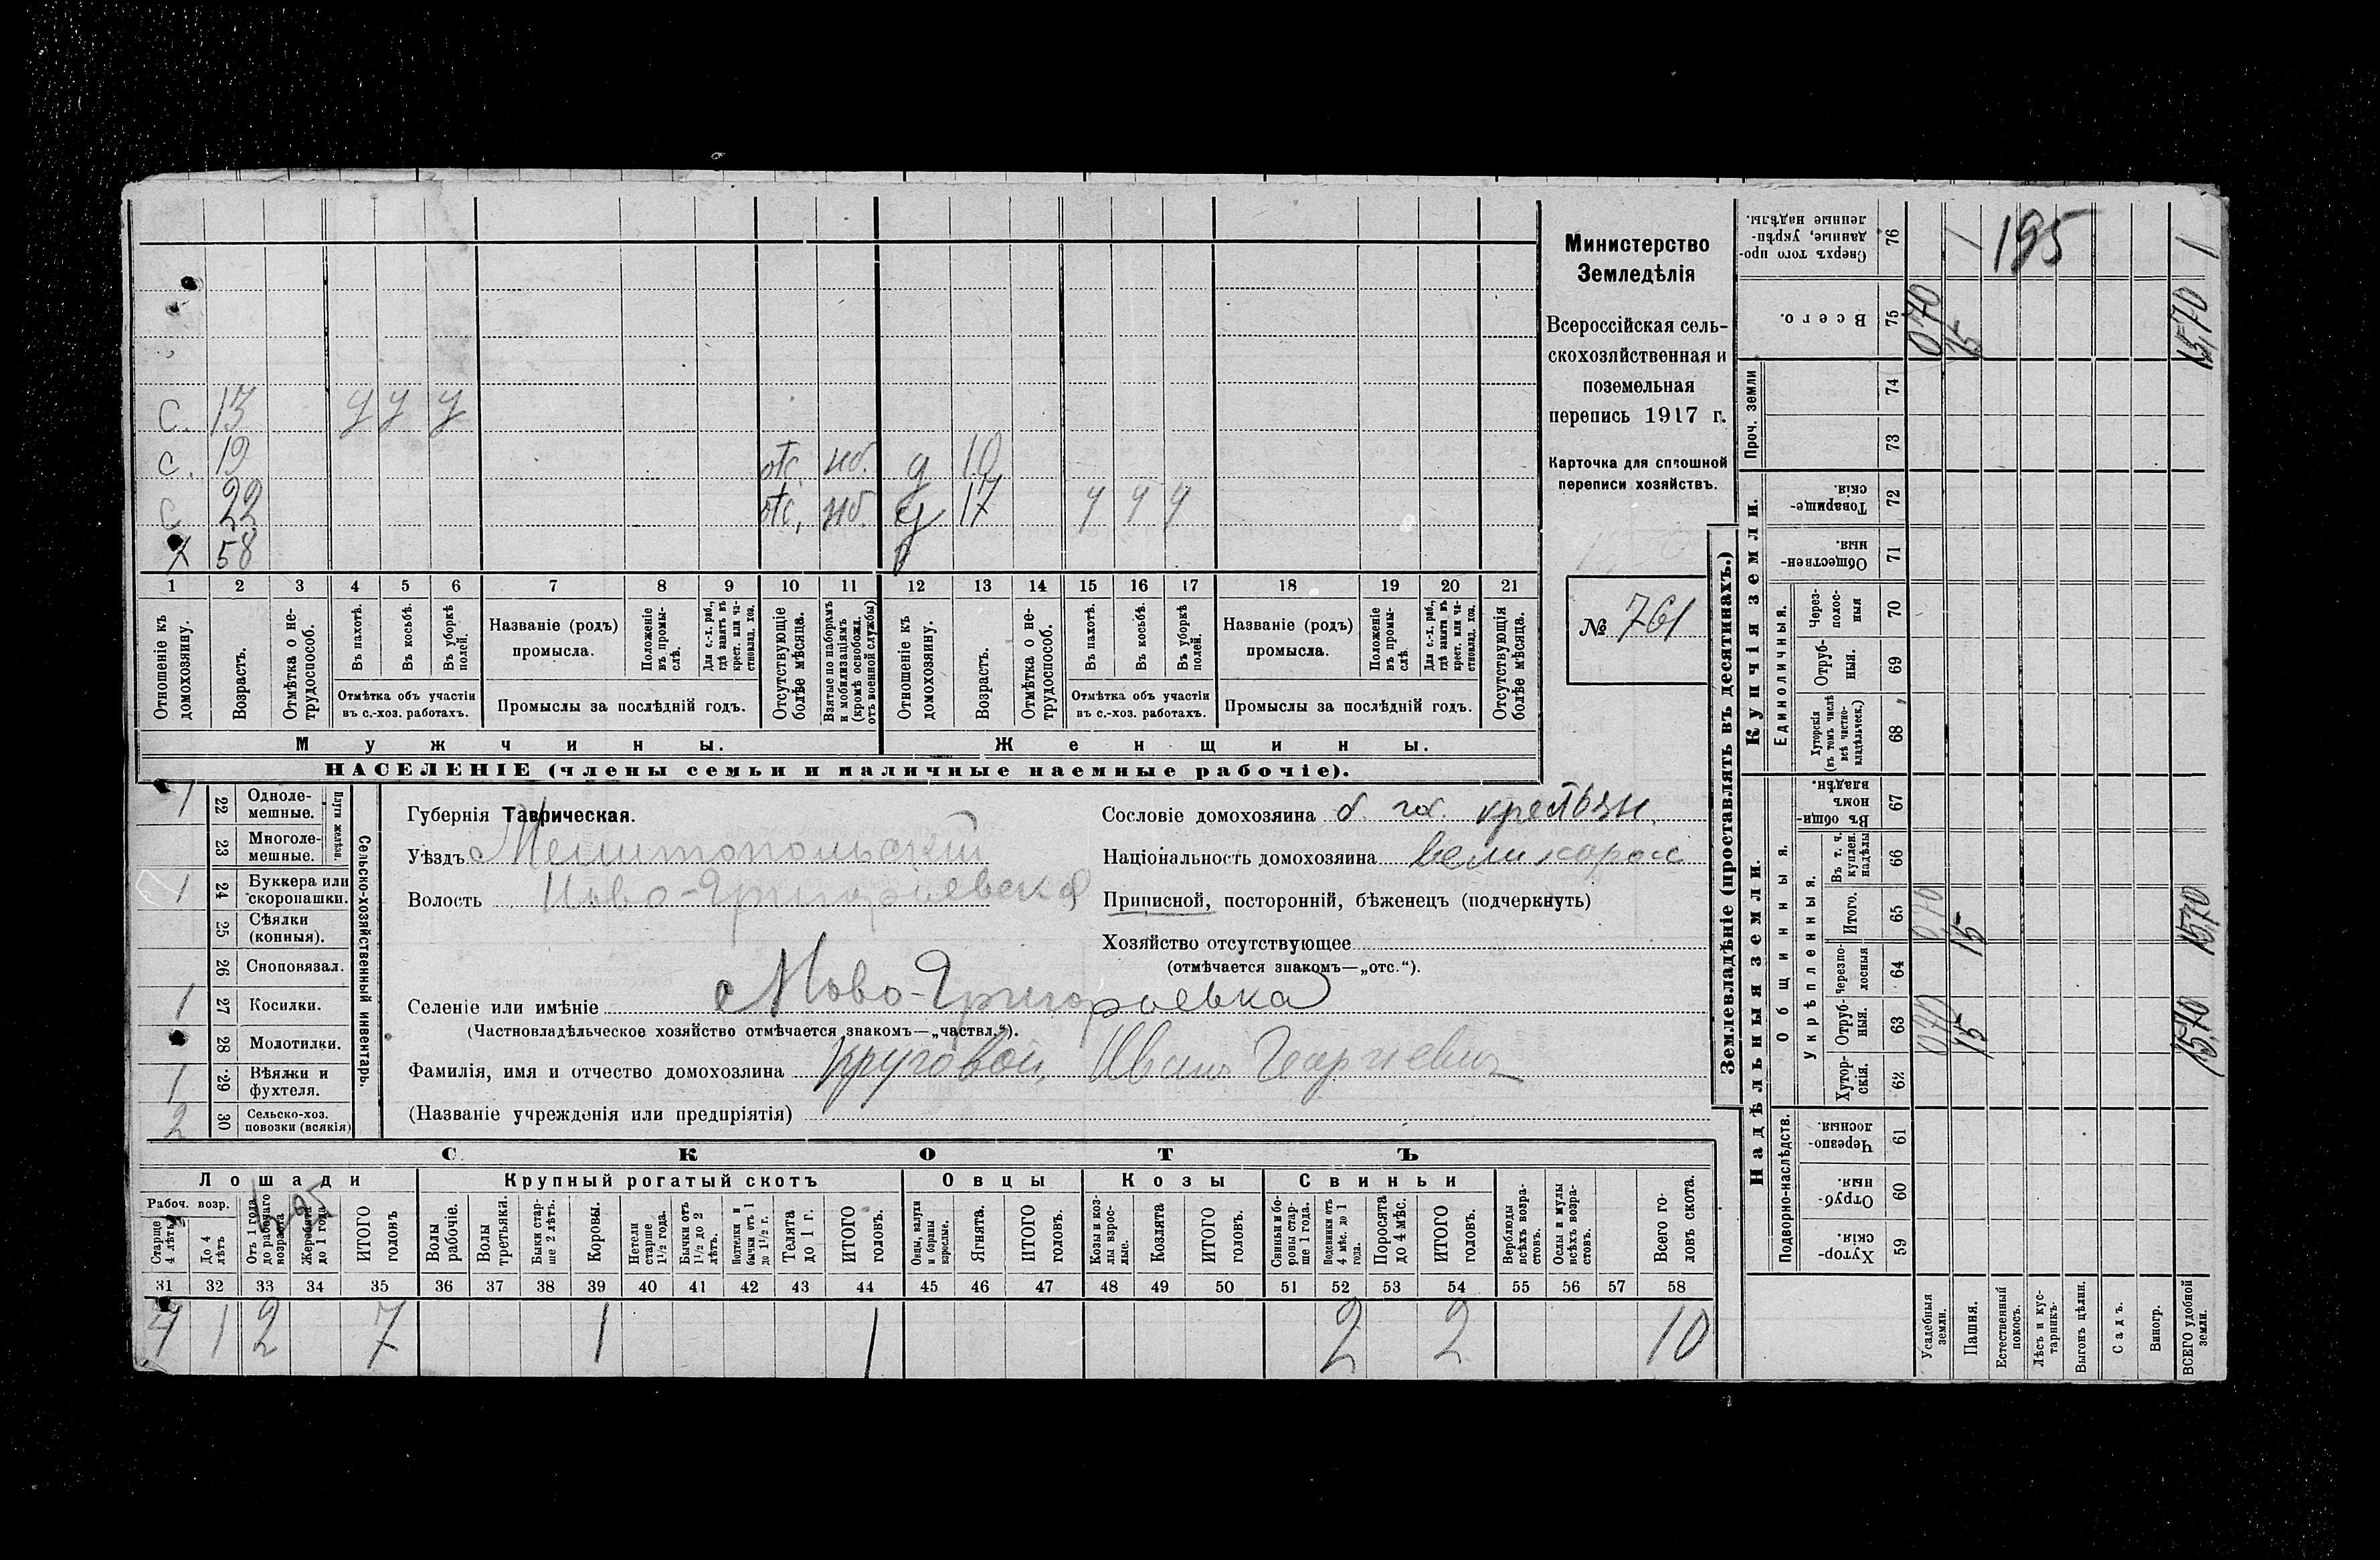 Министерство
Земледѣлія
Всероссійская сель-
скохозяйственная и
поземельная
перепись 1917 г.
Карточка для сплошной
переписи хозяйствъ.
№ 761
С. 13 у у у
с. 19 отс. мб. д 10
с 22 отс, мб. д 17 у у у
х 58
1 2 3 4 5 6 7 8 9 10 11 12 13 14 15 16 17 18 19 20 21
Отношеніе къ домохозяину.
Возрастъ.
Отмѣтка о не-трудоспособ.
Въ пахотѣ.
Въ косьбѣ.
Въ уборкѣ полей.
Отмѣтка объ участіи
въ с.-хоз. работахъ.
Названіе (родъ)
промысла.
Положеніе въ промы-слѣ.
Для с.-х. раб., гдѣ занятъ въ крест. или ча-стновлад. хоз.
Промыслы за послѣдній годъ.
Отсутствующіе болѣе мѣсяца.
Взятые по наборамъ и мобилизаціямъ (кромѣ освобожд. отъ военной службы)
Отношеніе къ домохозяину.
Возрастъ.
Отмѣтка о не-трудоспособ.
Въ пахотѣ.
Въ косьбѣ.
Въ уборкѣ полей.
Отмѣтка объ участіи
въ с.-хоз. работахъ.
Названіе (родъ)
промысла.
Положеніе въ промы-слѣ.
Для с.-х. раб., гдѣ занята въ крест. или ча-стновлад. хоз.
Промыслы за послѣдній годъ.
Отсутствующія болѣе мѣсяца.
Мужчины.
Женщины.
НАСЕЛЕНІЕ (члены семьи и наличные наемные рабочіе).
1 22 Одноле-мешные.
23 Многоле-мешные.
Плуги желѣзн.
1 24 Буккера или скоропашки.
25 Сѣялки (конныя).
26 Сноповязал.
1 27 Косилки.
28 Молотилки.
1 29 Вѣялки и фухтеля.
2 30 Сельско-хоз. повозки (всякія)
Сельско-хозяйственный инвентарь.
Губернія Таврическая.
Уѣздъ Мелитопольскій
Волость Ново-Григорьевска
Селеніе или имѣніе с Ново-Григорьевка
(Частновладѣльческое хозяйство отмѣчается знакомъ—„частвл.“).
Фамилія, имя и отчество домохозяина Круговой, Иванъ Георгіевичъ
(Названіе учрежденія или предпріятія)
Сословіе домохозяина б. гос. крестьян.
Національность домохозяина великоросс
Приписной, посторонній, бѣженецъ (подчеркнуть)
Хозяйство отсутствующее
(отмѣчается знакомъ—„отс.“).
СКОТЪ
Лошади
Рабоч. возр.
Старше 4 лѣтъ
До 4 лѣтъ
Отъ 1 года до рабочаго возраста
Жеребята до 1 года
ИТОГО головъ
Крупный рогатый скотъ
Волы рабочіе.
Волы третьяки.
Быки стар-ше 2 лѣтъ.
Коровы.
Нетели старше 1½ года.
Бычки отъ 1½ до 2 лѣтъ.
Подтелки и бычки отъ 1 до 1½ г.
Телята до 1 г.
ИТОГО головъ.
Овцы
Овцы, валухи и бараны взрослые.
Ягнята.
ИТОГО головъ.
Козы
Козы и коз-лы взрос-лые.
Козлята
ИТОГО головъ.
Свиньи
Свиньи и бо-ровы стар-ше 1 года.
Подсвинки отъ 4 мѣс. до 1 года.
Поросята до 4 мѣс.
ИТОГО головъ.
Верблюды всѣхъ возра-стовъ.
Ослы и мулы всѣхъ возра-стовъ.
Всего го-ловъ скота.
31 32 33 34 35 36 37 38 39 40 41 42 43 44 45 46 47 48 49 50 51 52 53 54 55 56 57 58
4 1 2 7 1 1 2 2 10
Землевладѣніе (проставлять въ десятинахъ.)
Надѣльныя земли.
Купчія земли.
Проч. земли
Подворно-наслѣдств.
Общинныя.
Укрѣпленныя.
Единоличныя.
Хутор-скія. 59
Отруб-ныя. 60
Черезпо-лосныя. 61
Хутор-скія. 62
Отруб-ныя. 63
Черезпо-лосныя 64
Итого. 65
Въ т. ч. куплен. надѣлы 66
Въ общи-номъ владѣн. 67
Хуторскія (въ томъ числѣ всѣ частно-владѣльческ.) 68
Отруб-ныя. 69
Через-полос-ныя 70
Обществен-ныя. 71
Товарище-скія. 72
73
74
Всего. 75
Сверхъ того про-данные, укрѣп-ленные надѣлы. 76
Усадебныя земли. 0,70 0,70 0,70
Пашня. 15 15 15 1
Естественный покосъ.
Лѣсъ и кус-тарникъ.
Выгонъ цѣлин.
Садъ.
Виногр.
ВСЕГО удобной земли. 15,70 15,70 15,70 1
195